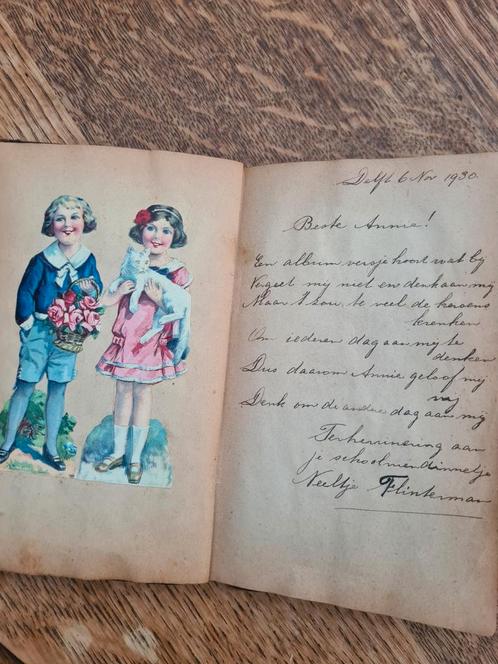 Delft 6 Nov 1930.
Beste Annie!
Een album versje hoort wat bij
Vergeet mij niet en denk aan mij
Maar 't zou, te veel de hersens
krenken
Om iederen dag aan mij te
denken
Dus daarom Annie geloof mij
vrij
Denk om de andre dag aan mij
Ter herrinering aan
je schoolvriendinnetje
Neeltje Flinterman